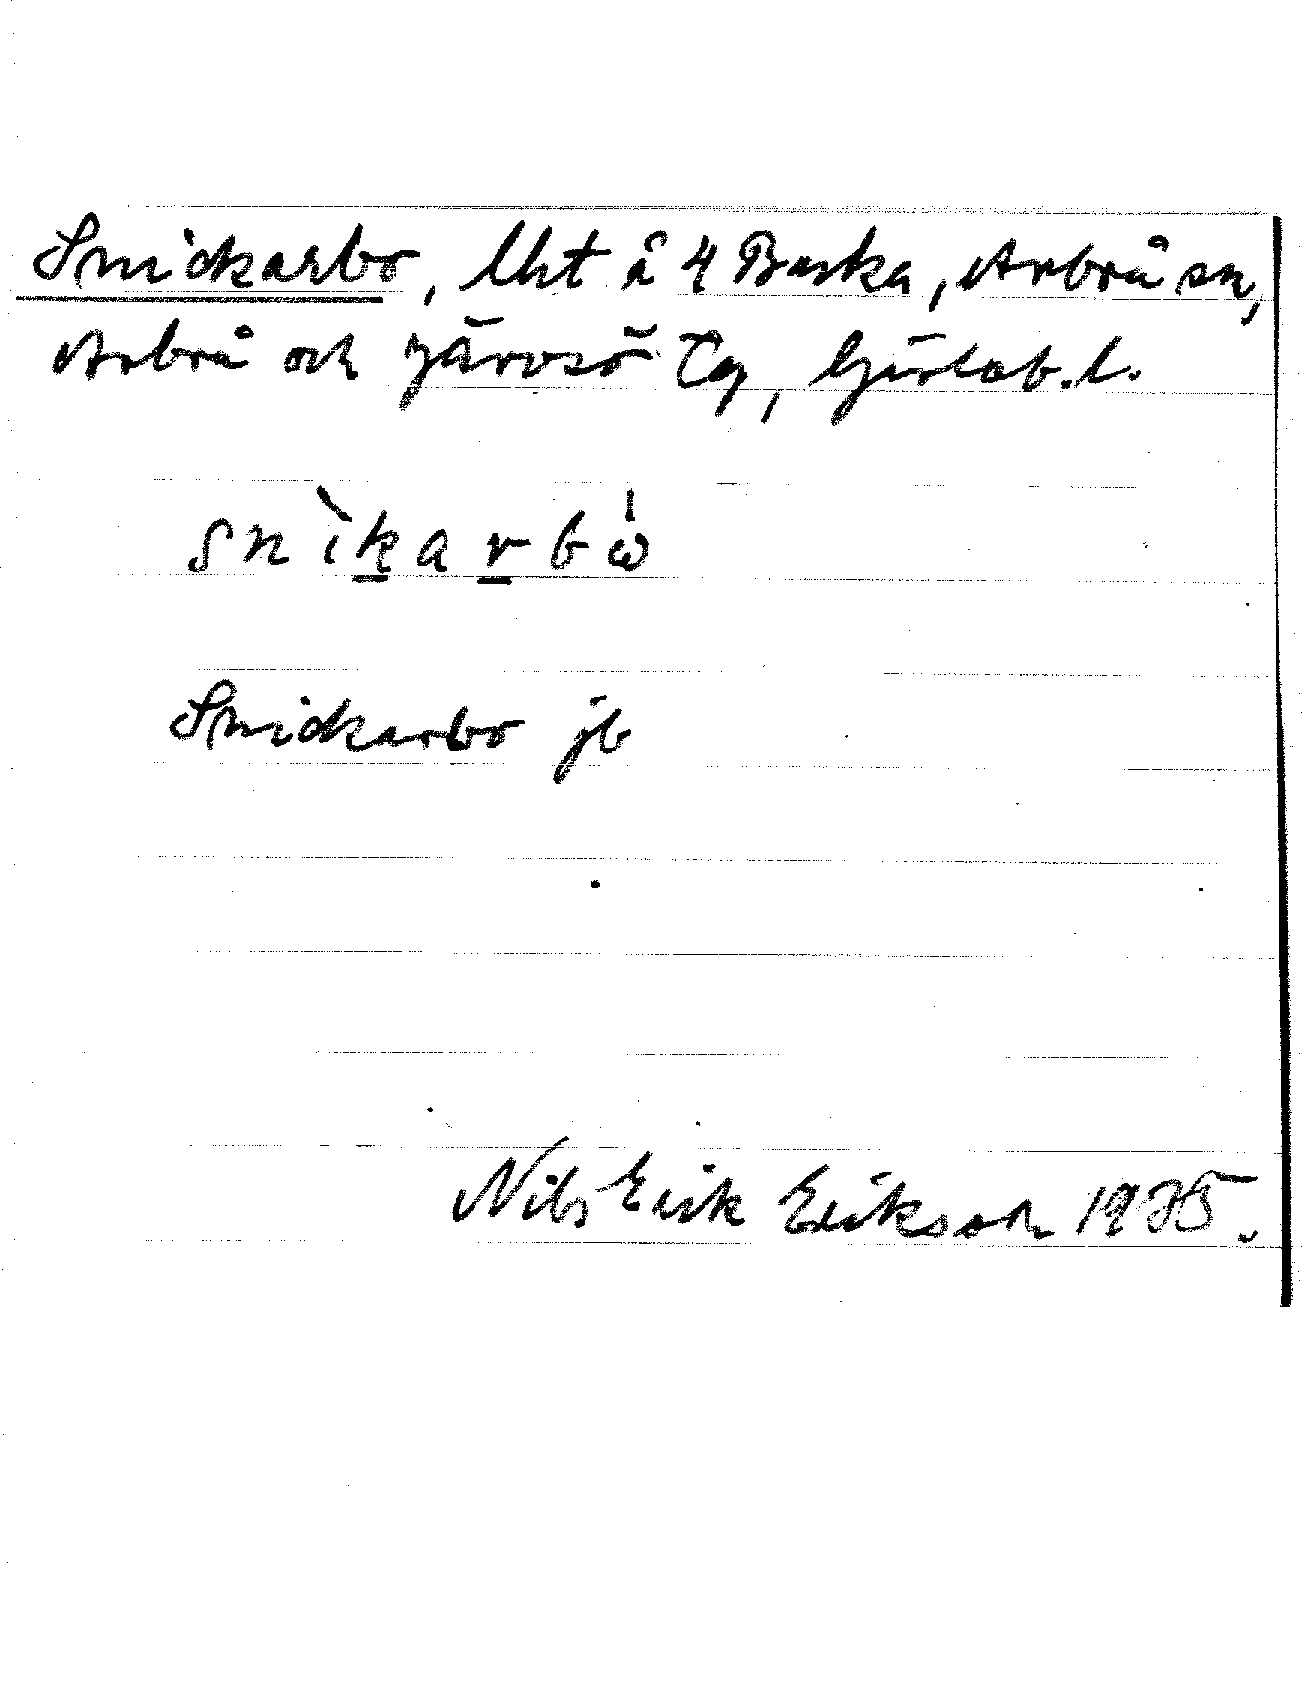 Snickarbo, lht å 4 Baska, Arbrå sn,
Arbrå och Järvsö tg, Gävleb. l.
snìkarbω̍
Snickarbo jb
Nils Erik Erikson 1975.